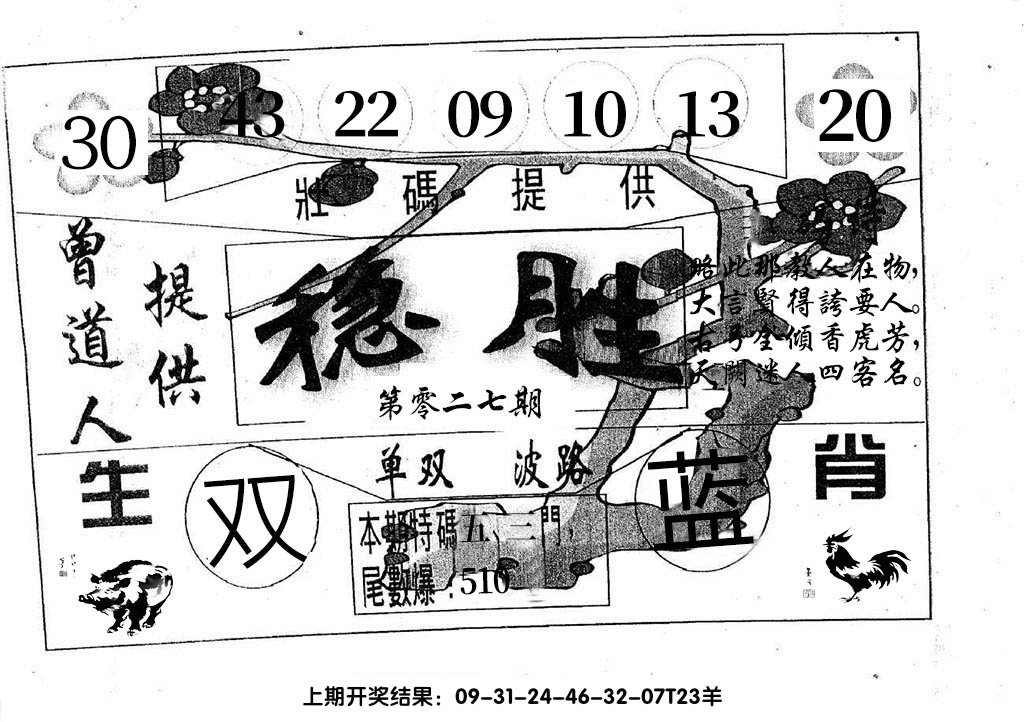 30 43 22 09 10 13 20
壯碼提供
曾道人
提供
稳胜
第零二七期
略此那毅人在物，
大言賢得誇要人。
古弓全傾香虎芳，
天開迷人四客名。
单双 波路
生肖
双
蓝
本期特碼五、三門，
尾數爆：510
上期开奖结果：09-31-24-46-32-07T23羊